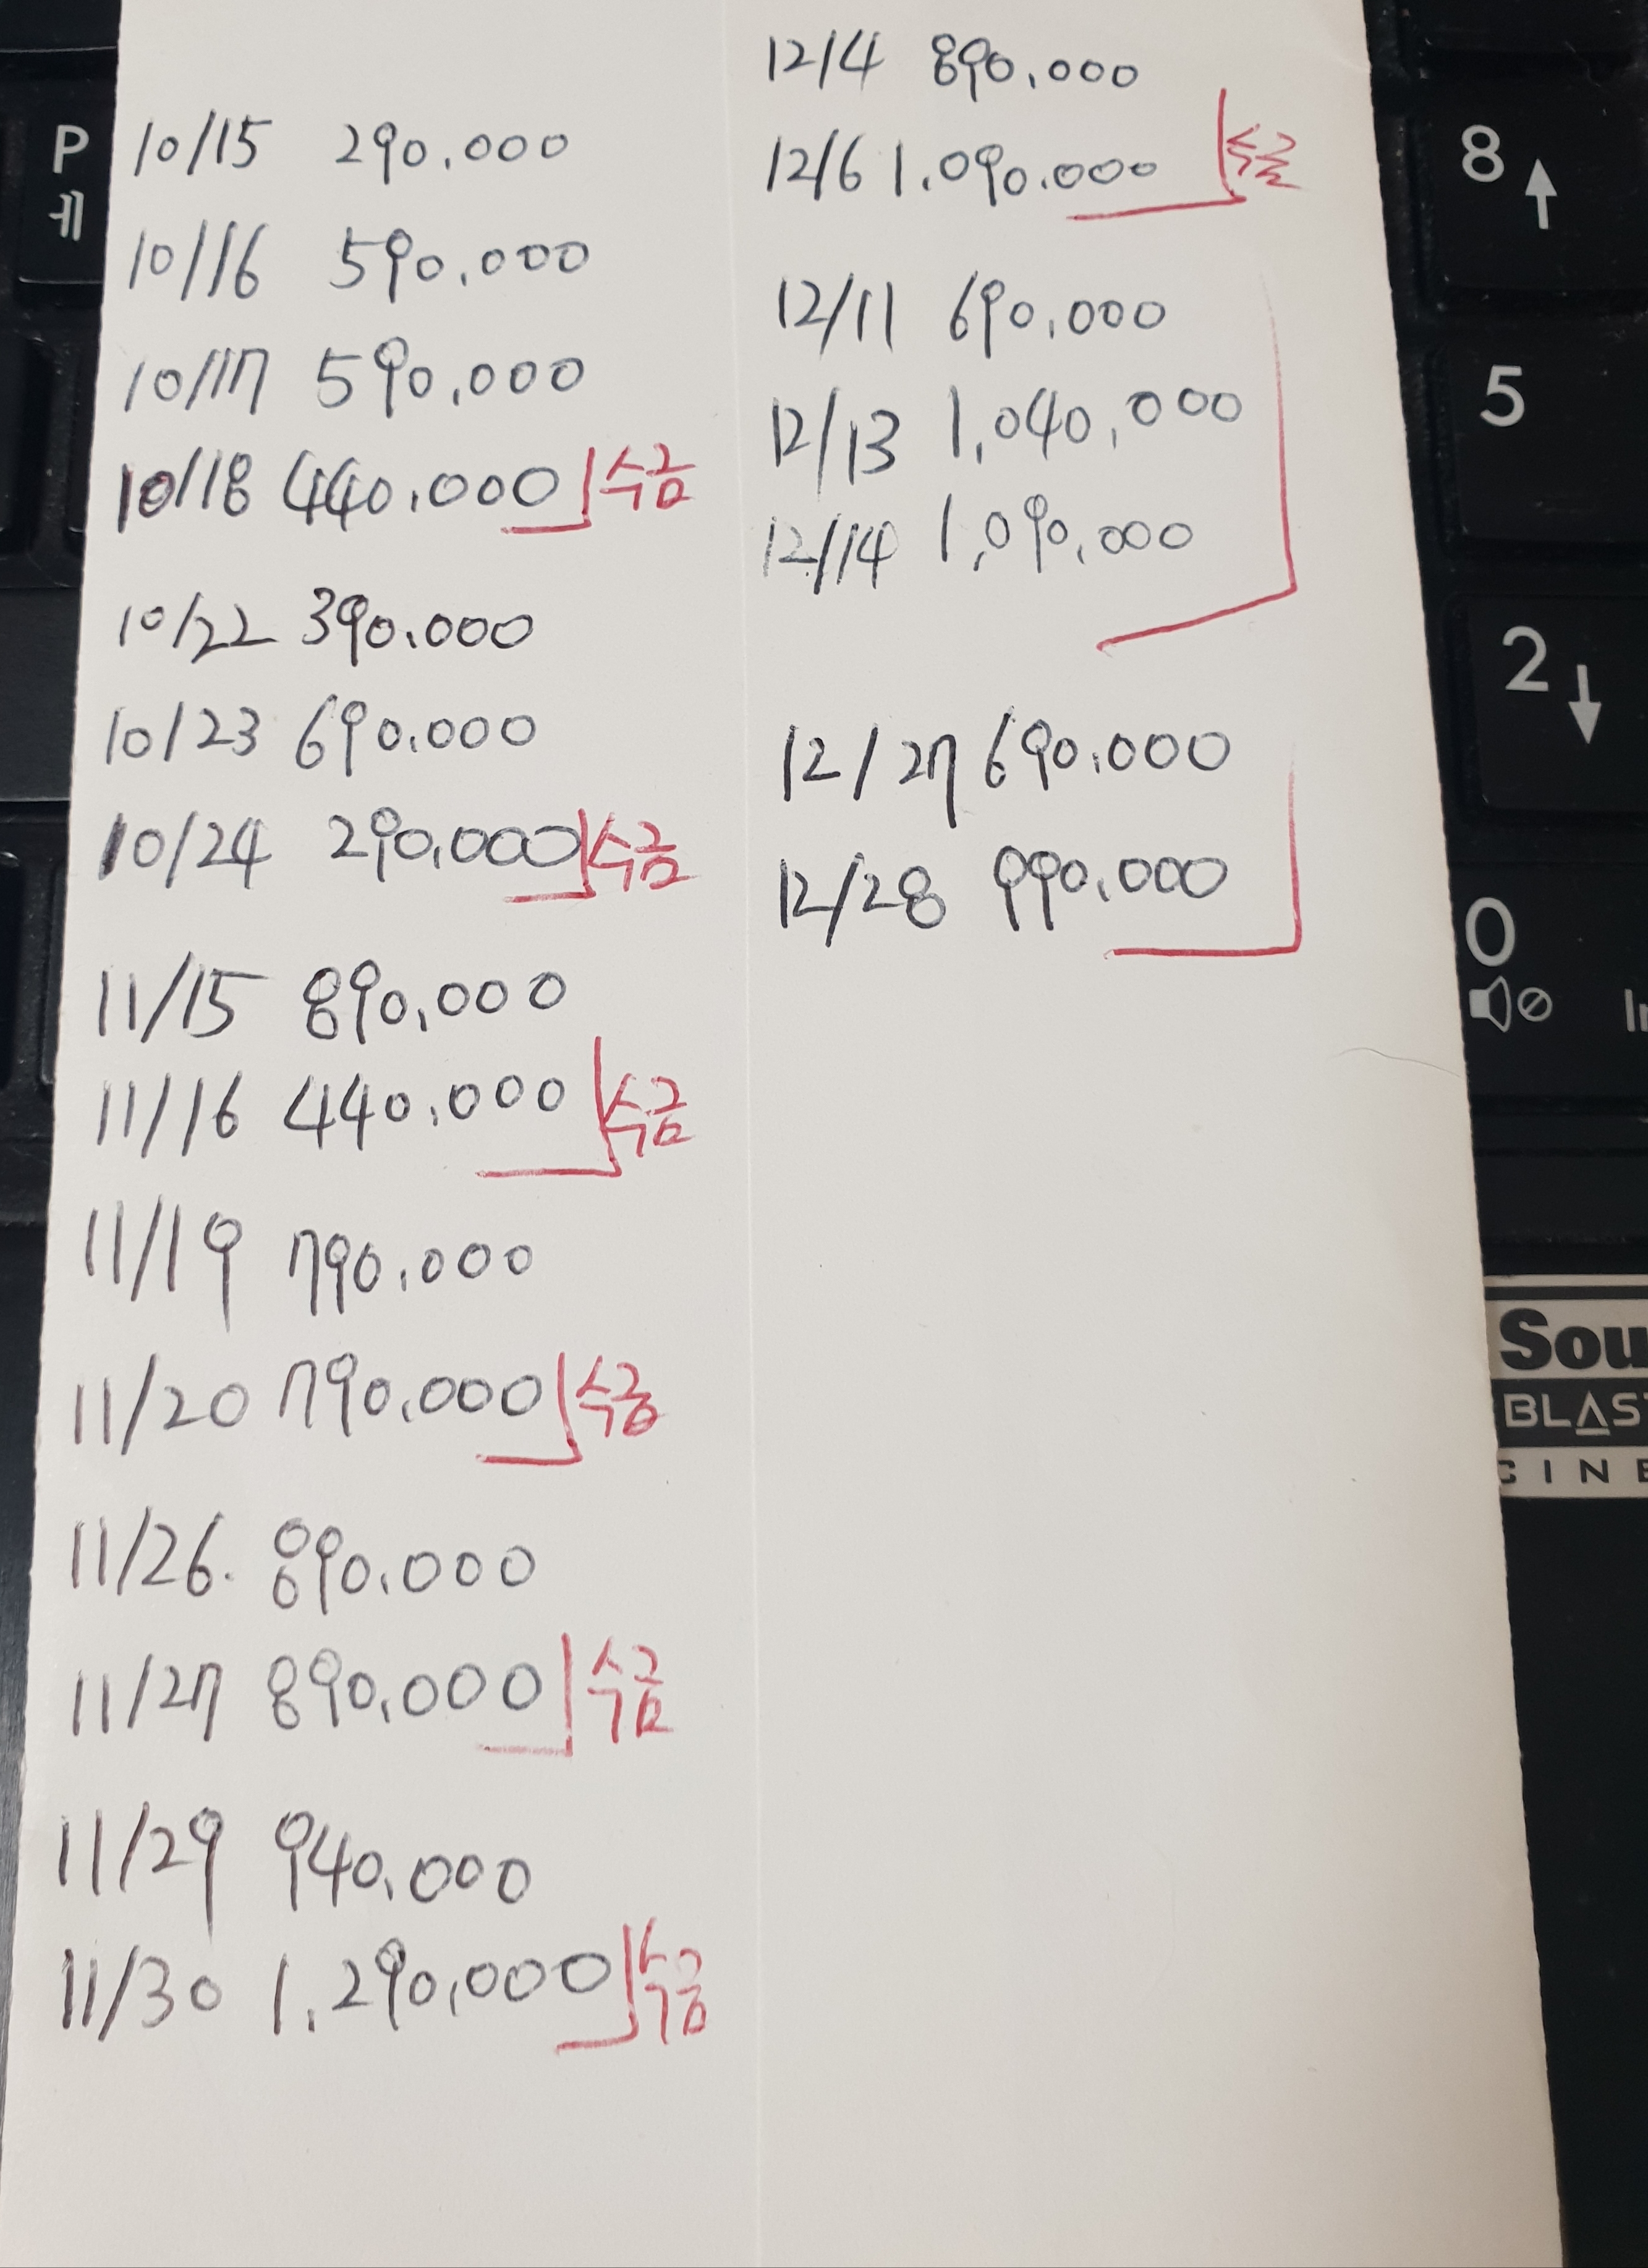 10/15 290.000
10/16 590.000
10/17 590.000
10/18 440.000 수금
10/22 390.000
10/23 690.000
10/24 290.000 수금
11/15 890.000
11/16 440.000 수금
11/19 790.000
11/20 790.000 수금
11/26. 890.000
11/27 890.000 수금
11/29 940.000
11/30 1.290.000 수금
12/4 890.000
12/6 1.090.000 수금
12/11 690.000
12/13 1,040,000
12/14 1,090,000
12/27 690.000
12/28 990.000
P
ㅖ
8
5
2
0
Sou
BLAS
CINE